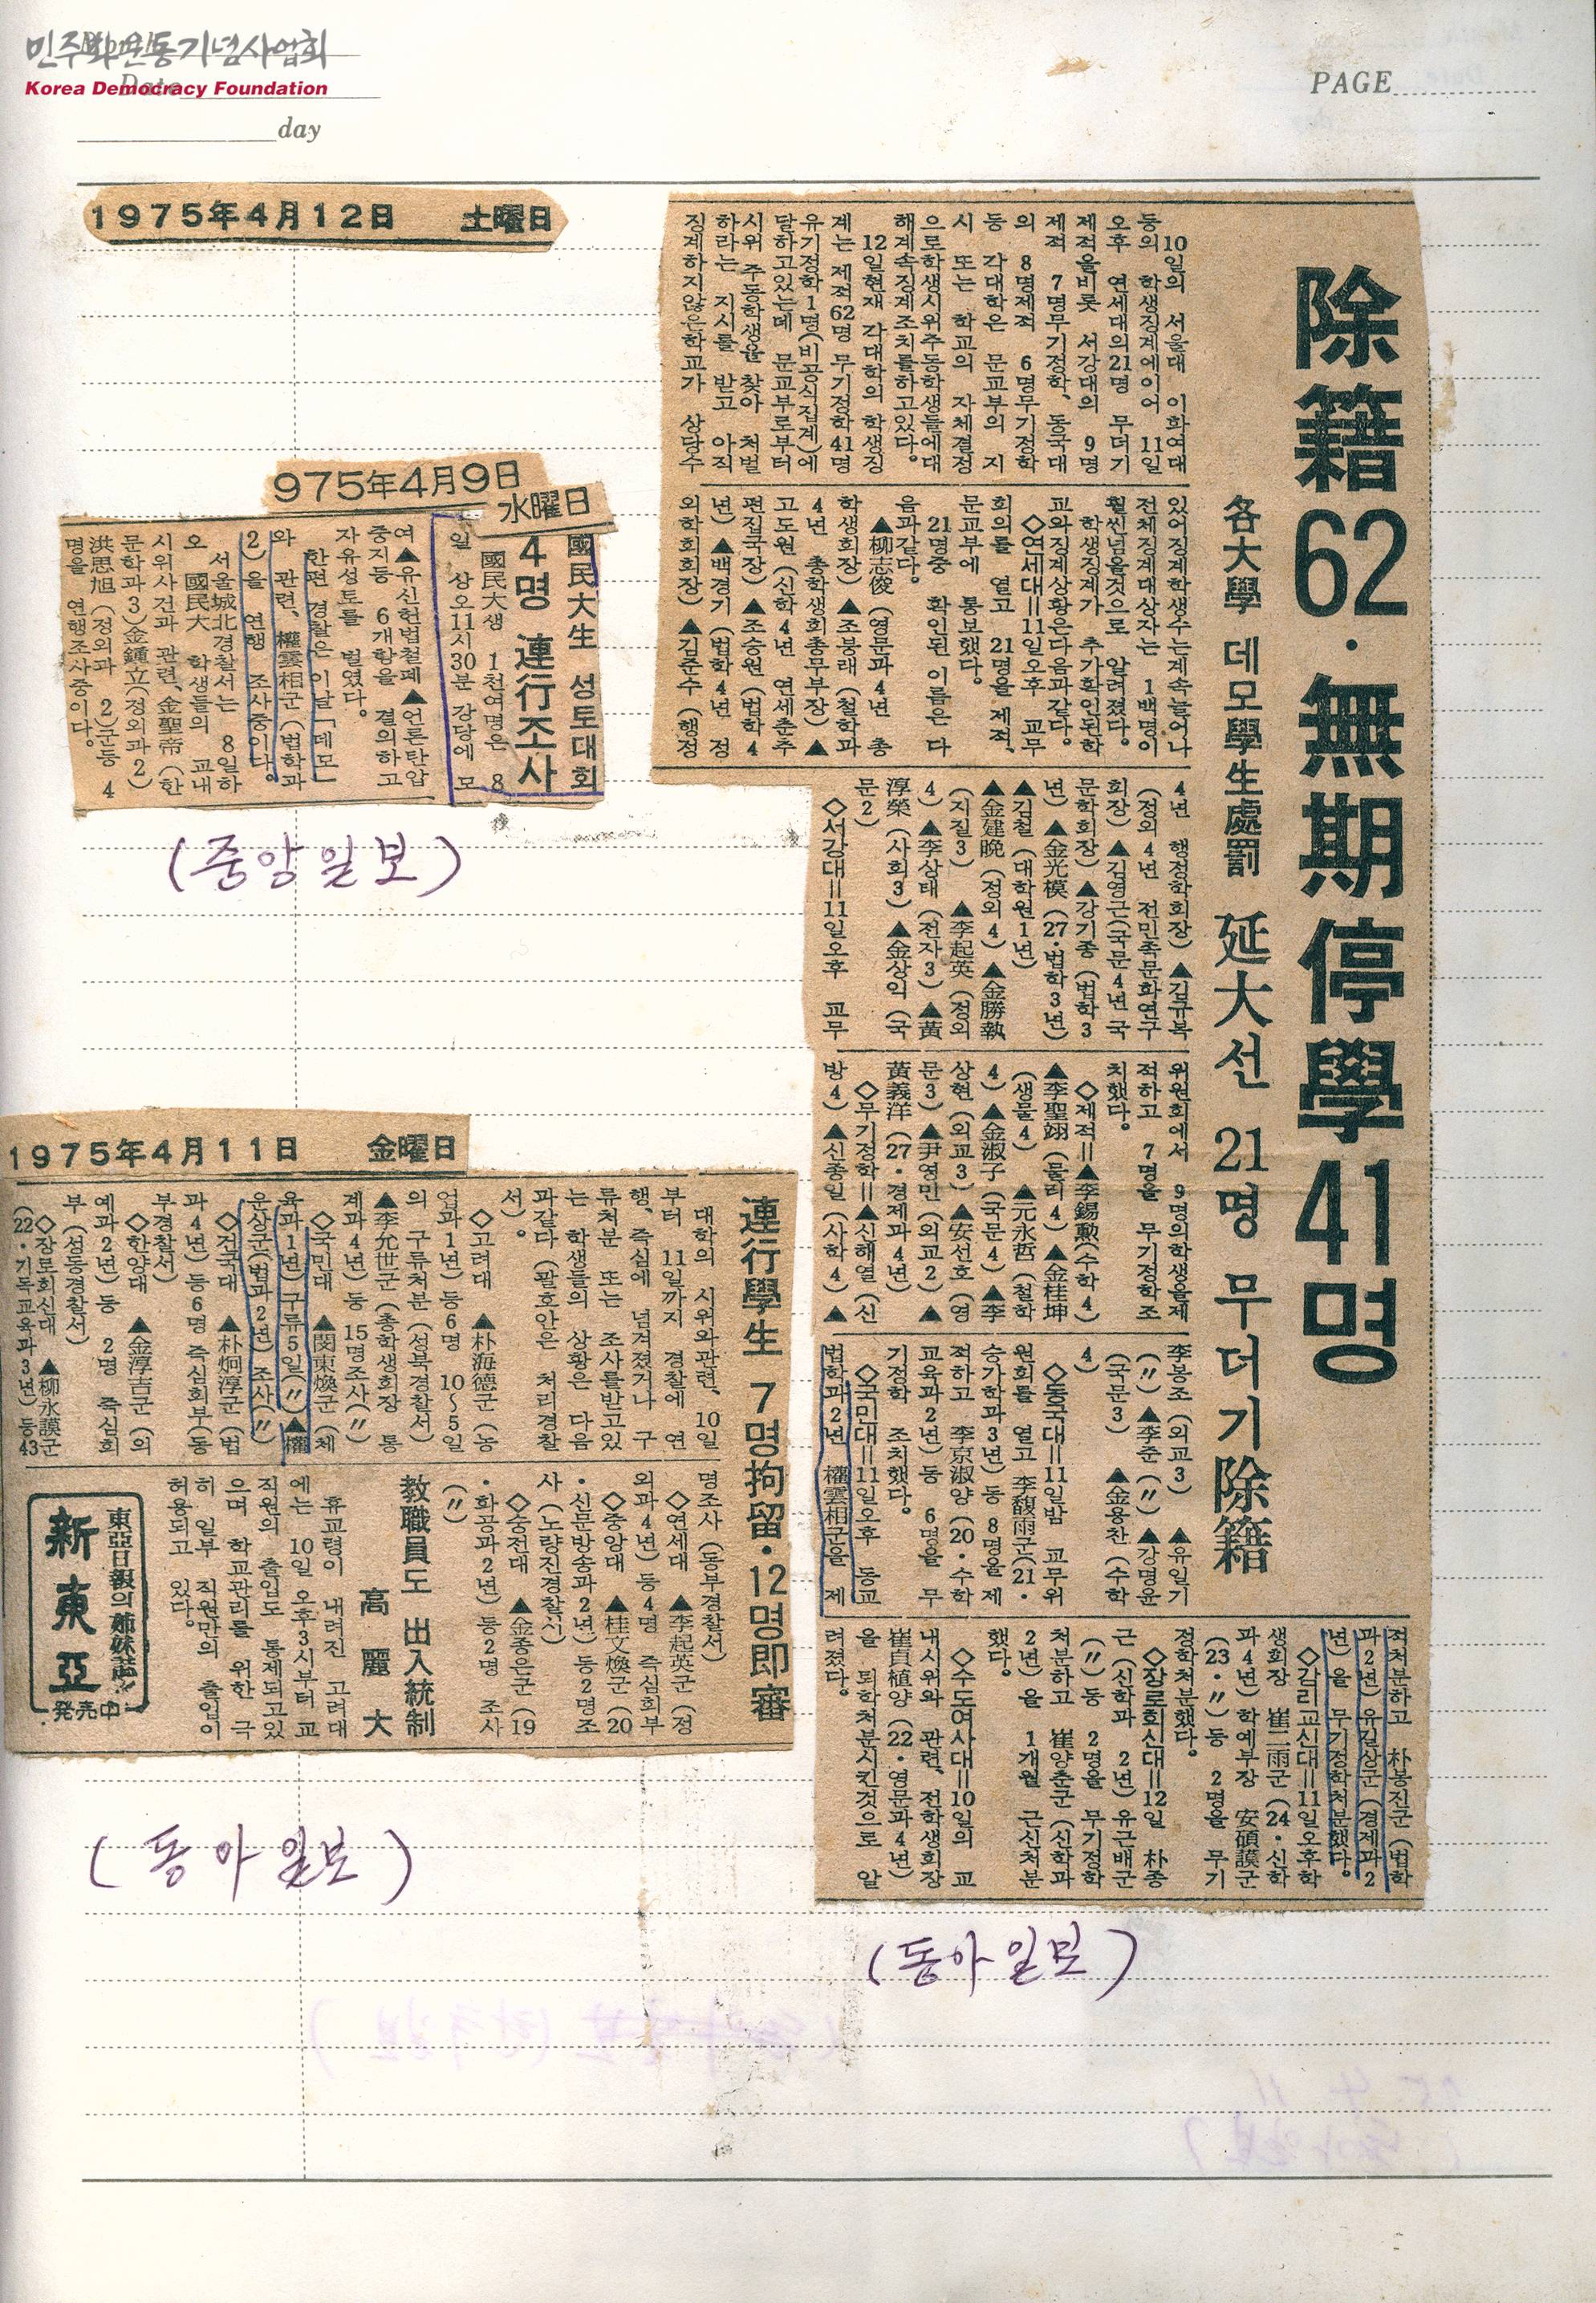 민주화운동기념사업회
Korea Democracy Foundation
Date
day
PAGE
1975年4月12日 土曜日
除籍62·無期停學41명
各大學 데모學生處罰 延大선 21명 무더기除籍
10일의 서울대 이화여대
등의 학생징계에이어 11일
오후 연세대의21명 무더기
제적을비롯 서강대의 9명
제적 7명무기정학、동국대
의 8명제적 6명무기정학
등 각대학은 문교부의 지
시 또는 학교의 자체결정
으로학생시위주동학생들에대
해계속징계조치를하고있다。
12일현재 각대학의 학생징
계는 제적62명 무기정학41명
유기정학1명(비공식집계)에
달하고있는데 문교부로부터
시위 주동학생을 찾아 처벌
하라는 지시를 받고 아직
징계하지않은학교가 상당수
있어징계학생수는계속늘어나
전체징계대상자는 1백명이
훨씬넘을것으로 알려졌다。
학생징계가 추가확인된학
교와징계상황은다음과같다。
◇연세대=11일오후 교무
회의를 열고 21명을 제적、
문교부에 통보했다。
21명중 확인된 이름은 다
음과같다。
▲柳志俊(영문과4년 총
학생회장)▲조봉래(철학과
4년 총학생회총무부장)▲
고도원(신학4년 연세춘추
편집국장)▲조승원(법학4
년)▲백경기(법학4년 정
외학회회장)▲김준수(행정
4년 행정학회장)▲김규복
(정외4년 전민족문화연구
회장)▲김영근(국문4년국
문학회장)▲강기종(법학3
년)▲金光模(27·법학3년)
▲김철(대학원1년)
▲金建晩(정외4)▲金勝執
(지질3) ▲李起英(정외
4)▲李상태(전자3)▲黃
淳榮(사회3)▲金상익(국
문2)
◇서강대=11일오후 교무
위원회에서 9명의학생을제
적하고 7명을 무기정학조
치했다。
◇제적=▲李錫勳(수학4)
▲李聖翊(물리4)▲金桂坤
(생물4) ▲元永哲(철학
4)▲金淑子(국문4)▲李
상현(외교3)▲安선호(영
문3)▲尹영민(외교2)▲
黃義洋(27·경제과4년)
◇무기정학=▲신해열(신
방4)▲신종일(사학4)▲
李봉조(외교3) ▲유일기
(〃)▲李준(〃)▲강명윤
(국문3) ▲金용찬(수학
4)
◇동국대=11일밤 교무위
원회를 열고 李馥雨군(21·
승가학과3년)등 8명을제
적하고 李京淑양(20·수학
교육과2년)등 6명을 무
기정학 조치했다。
◇국민대=11일오후 동교
법학과2년 權雲相군을 제
적처분하고 朴봉진군(법학
과2년)유길상군(경제과2
년)을 무기정학처분했다。
◇감리교신대=11일오후학
생회장 崔二雨군(24·신학
과4년)학예부장 安碩謨군
(23·〃)등 2명을 무기
정학처분했다。
◇장로회신대=12일 朴종
근(신학과 2년)유근배군
(〃)등 2명을 무기정학
처분하고 崔양춘군(신학과
2년)을 1개월 근신처분
했다。
◇수도여사대=10일의 교
내시위와 관련、전학생회장
崔貞植양(22·영문과4년)
을 퇴학처분시킨것으로 알
려졌다。
(동아일보)
975年4月9日
水曜日
國民大生 성토대회
4명 連行조사
國民大생 1천여명은 8
일 상오11시30분 강당에 모
여▲유신헌법철폐▲언론탄압
중지등 6개항을 결의하고
자유성토를 벌였다。
한편 경찰은 이날 「데모」
와 관련、權雲相군(법학과
2)을 연행 조사중이다。
서울城北경찰서는 8일하
오 國民大 학생들의 교내
시위사건과 관련、金聖帝(한
문학과3)金鍾立(정외과2)
洪思旭(정외과 2)군등 4
명을 연행조사중이다。
(중앙일보)
1975年4月11日 金曜日
連行學生 7명拘留·12명即審
대학의 시위와관련、10일
부터 11일까지 경찰에 연
행、즉심에 넘겨졌거나 구
류처분 또는 조사를받고있
는 학생들의 상황은 다음
과같다(괄호안은 처리경찰
서)。
◇고려대 ▲朴海德군(농
업과1년)등6명 10~5일
의 구류처분(성북경찰서)
▲李允世군(총학생회장 통
계과4년)등 15명조사(〃)
◇국민대 ▲閔東煥군(체
육과1년)구류5일(〃)▲權
운상군(법과2년)조사(〃)
◇건국대 ▲朴炯淳군(법
과4년)등6명 즉심회부(동
부경찰서)
◇한양대 ▲金淳吉군(의
예과2년)등 2명 즉심회
부(성동경찰서)
◇장로회신대 ▲柳永謨군
(22·기독교육과3년)등43
명조사(동부경찰서)
◇연세대 ▲李起英군(정
외과4년)등4명 즉심회부
◇중앙대 ▲桂文煥군(20
·신문방송과2년)등2명조
사(노량진경찰서)
◇숭전대 ▲金종은군(19
·화공과2년)등2명 조사
(〃)
教職員도 出入統制
高麗大
휴교령이 내려진 고려대
에는 10일 오후3시부터 교
직원의 출입도 통제되고있
으며 학교관리를 위한 극
히 일부 직원만의 출입이
허용되고 있다。
東亞日報의 姉妹誌!!
新東亞
発売中
(동아일보)